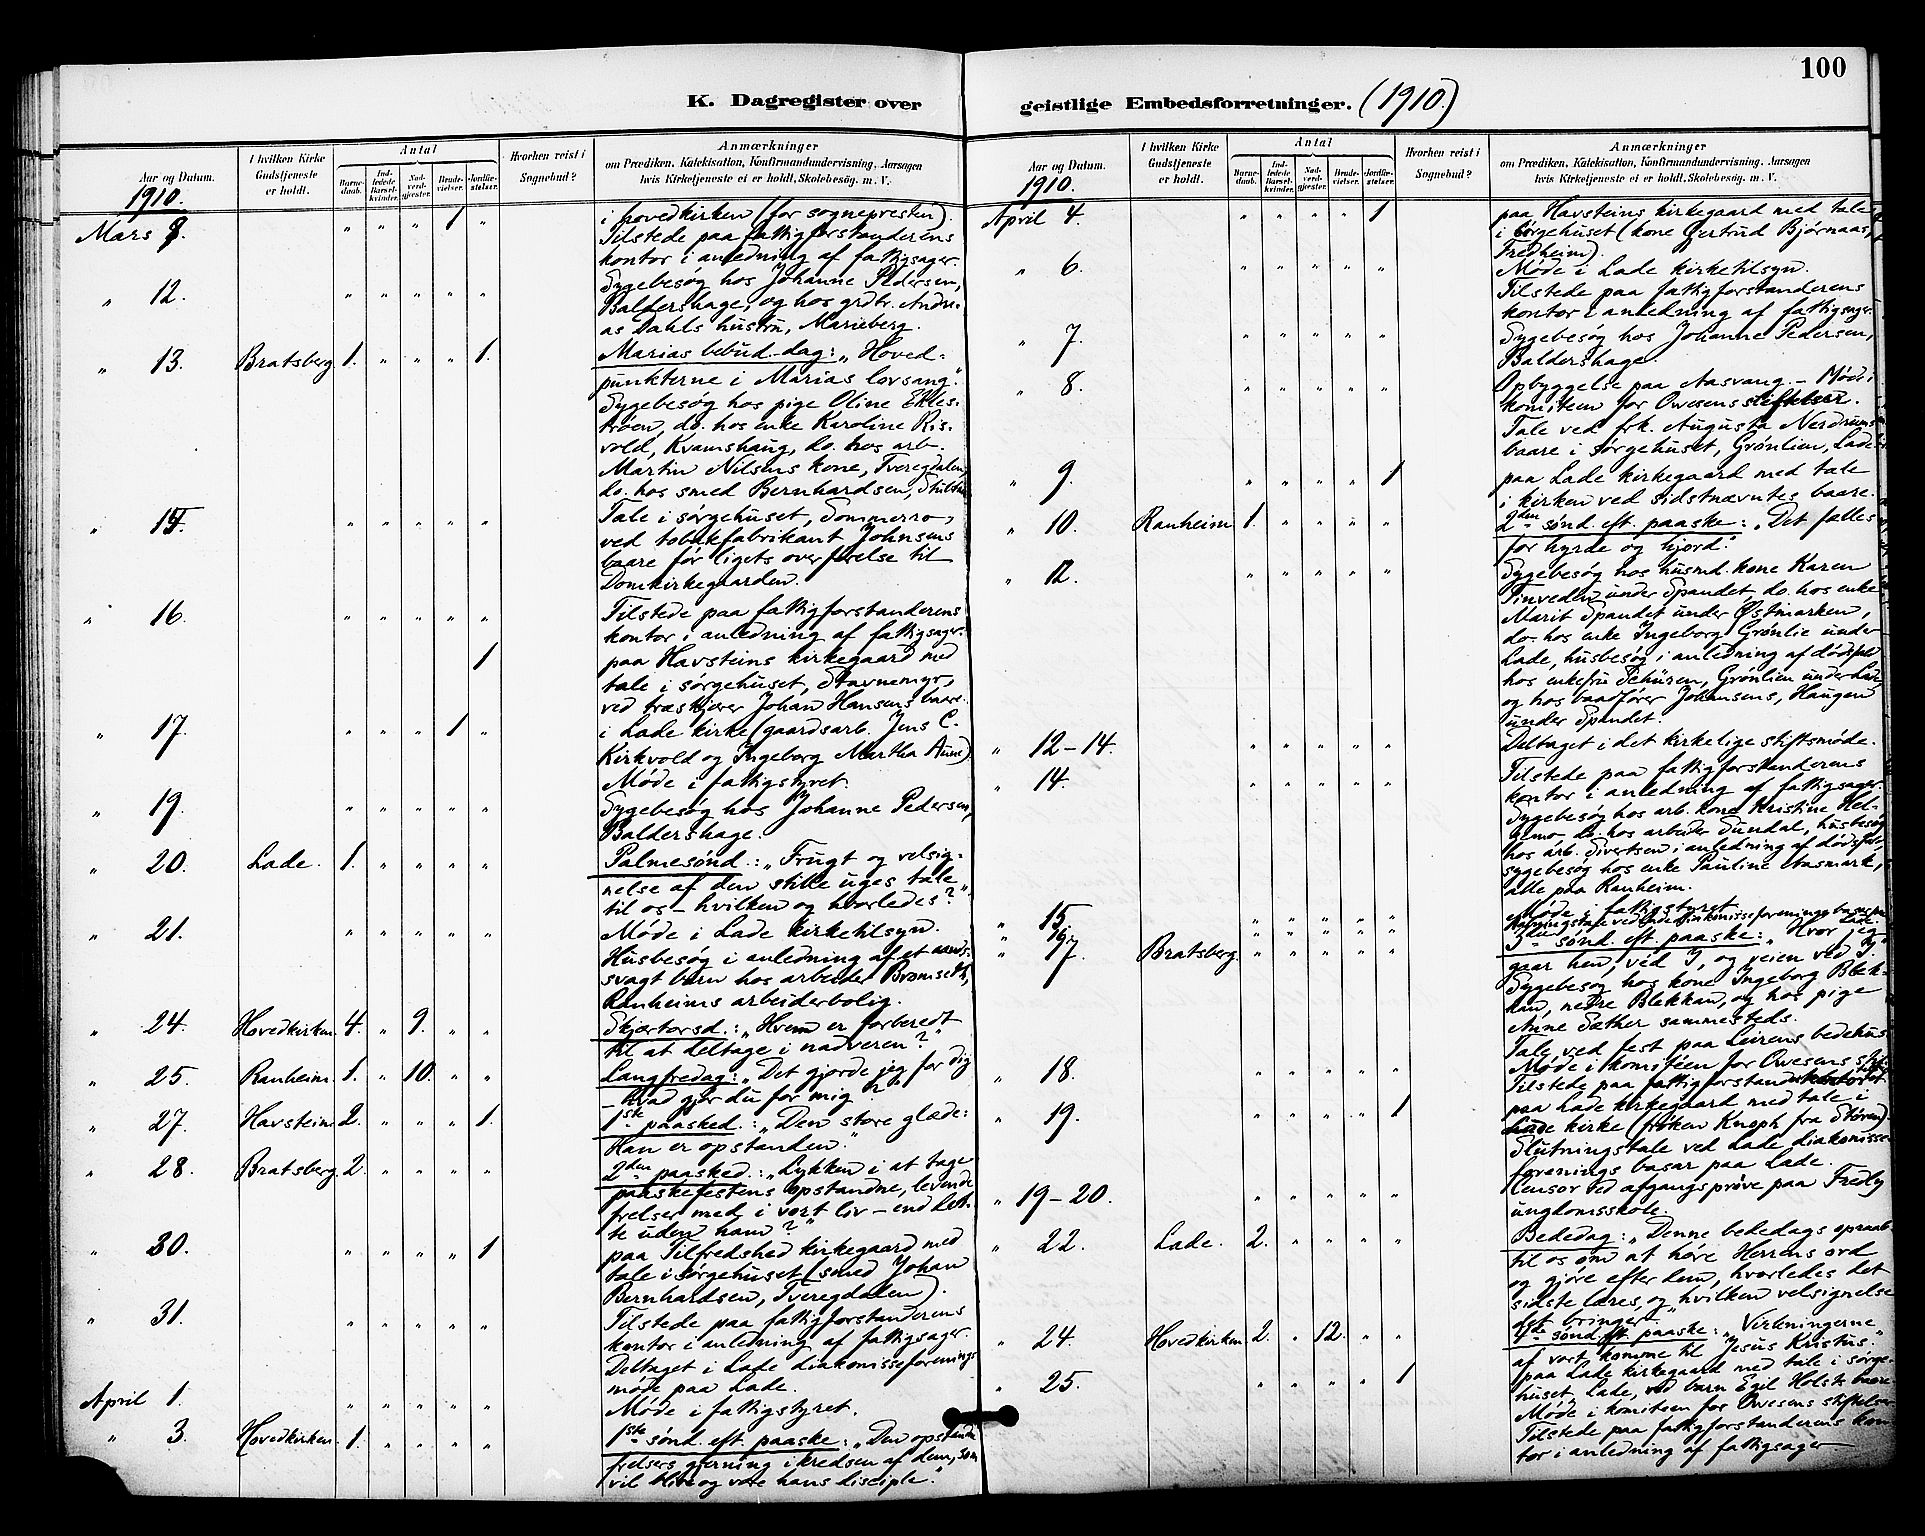 100
K. Dagregister over
geistlige Embedsforretninger. (1910.)
Aar og Datum.
I hvilken Kirke Gudstjeneste er holdt.
Antal
Barne-daab.
Ind-ledede Barsel-kvinder.
Nad-verd-gjester.
Brude-vielser.
Jordfæ-stelser.
Hvorhen reist i Sognebud?
Anmærkninger
om Prædiken, Katekisation, Konfirmandundervisning, Aarsagen
hvis Kirketjeneste ei er holdt, Skolebesøg. m. V.
1910.
Mars 8. " " " 1 " i hovedkirken (for sognepresten).
Tilstede paa fattigforstanderens
kontor i anledning af fattigsager.
" 12. " " " " " Sygebesøg hos Johanne Pedersen,
Baldershage, og hos grdbr. Andre-
as Dahls hustru, Marieberg.
" 13. Bratsberg 1. " " " 1. Marias bebud.-dag: "Hoved-
punkterne i Marias lovsang".
Sygebesøg hos pige Oline Ekles-
trøen, do. hos enke Karoline Ris-
vold, Kvamshaug, do. hos arb.
Martin Nilsens kone, Tveregdalen,
do. hos smed Bernhardsen,
" 15. " " " " " Tale i sørgehuset, Sommerro,
ved tobakfabrikant Johnsens
baare før ligets overførelse til
Domkirkegaarden.
" 16. " " " " " Tilstede paa fattigforstanderens
kontor i anledning af fattigsager.
1 paa Havsteins kirkegaard med
tale i sørgehuset, Stavnemyr,
ved træskjærer Johan Hansens baare.
" 17. " " " 1 " i Lade kirke (gaardsarb. Jens C.
Kirkvold og Ingeborg Martha Aune)
Møde i fattigstyret.
" 19. " " " " " Sygebesøg hos Johanne Pedersen,
Baldershage.
" 20. Lade. 1. " " " " Palmesønd.: "Frugt og velsig-
nelse af den stille uges tale
til os – hvilken og hvorledes?"
" 21. " " " " " Møde i Lade kirketilsyn.
Husbesøg i anledning af et aands-
svagt barn hos arbeider Brømseth,
Ranheims arbeiderbolig.
" 24. Hovedkirken. 4. " 9. " " Skjærtorsd.: "Hvem er forberedt
til at deltage i nadveren?"
" 25. Ranheim. 1. " 10. " " Langfredag: "Det gjorde jeg for dig
– hvad gjør du for mig?"
" 27. Havstein. 2. " " " 1. 1ste paasked.: "Den store glæde:
Han er opstanden."
" 28. Bratsberg. 2. " " " " 2den paasked.: "Lykken i at tage
paaskefestens opstandne, levende
frelser med i vort liv – end let-
te uden ham?"
" 30. " " " " 1 paa Tilfredshed kirkegaard med
tale i sørgehuset (smed Johan
Bernhardsen, Tveregdalen).
" 31. " " " " " Tilstede paa fattigforstanderens
kontor i anledning af fattigsager.
Deltaget i Lade diakonisseforenings
møde paa Lade.
April 1. " " " " " Møde i fattigstyret.
" 3. Hovedkirken. 1. " " " " 1ste sønd. eft. paaske: "Den opstandne
frelsers gjerning i kredsen af dem, som
vil blive og være hans disciple."
Aar og Datum.
I hvilken Kirke Gudstjeneste er holdt.
Antal
Barne-daab.
Ind-ledede Barsel-kvinder.
Nad-verd-gjester.
Brude-vielser.
Jordfæ-stelser.
Hvorhen reist i Sognebud?
Anmærkninger
om Prædiken, Katekisation, Konfirmandundervisning. Aarsagen
hvis Kirketjeneste ei er holdt, Skolebesøg. m. V.
1910.
April 4. " " " " 1 paa Havsteins kirkegaard med tale
i sørgehuset (kone Gertrud Bjørnaas,
Fredheim).
" 6. " " " " " Møde i Lade kirketilsyn.
Tilstede paa fattigforstanderens
kontor i anledning af fattigsager.
" 7. " " " " " Sygebesøg hos Johanne Pedersen,
Baldershage.
" 8. " " " " " Opbyggelse paa Aasvang. – Møde i
komiteen for Owesens stiftelser.
Tale ved frk. Augusta Nerdrums
baare i sørgehuset, Grønlien, Lade.
" 9. " " " " 1 paa Lade kirkegaard med tale
i kirken ved sidstnævntes baare.
" 10. Ranheim. 1. " " " " 2den sønd. eft. paaske: "Det fælles
for hyrde og hjord."
" 12. " " " " " Sygebesøg hos husmd. kone Karen
Tinveden under Spandet, do. hos enke
Marit Spandet under Østmarken,
do. hos enke Ingeborg Grønlie under
Lade, husbesøg i anledning af dødsfald
hos enkefru Schüren, Grønlien under Lade,
og hos baadfører Johansens, Haugen
under Spandet.
" 12–14. " " " " " Deltaget i det kirkelige stiftsmøde.
" 14. " " " " " Tilstede paa fattigforstanderens
kontor i anledning af fattigsager.
Sygebesøg hos arb. kone Kristine Hel-
gemo, do. hos arbeider Sundal, husbesøg
hos arb. Sivertsen i anledning af dødsfald,
sygebesøg hos enke Pauline Aasmark,
alle paa Ranheim.
" 15. " " " " " Møde i fattigstyret.
" 16. " " " " "
" 17. Bratsberg. " " " " " 3die sønd. eft. paaske: "Hvor jeg
gaar hen, véd I, og veien ved I."
Sygebesøg hos kone Ingeborg Blek-
kan, nedre Blekkan, og hos pige
Anne Sæther sammesteds.
Tale ved fest paa Leirens bedehus
" 18. " " " " " Møde i komitéen for Owesens
Tilstede paa fattigforstanderkontoret
" 19. " " " " 1 paa Lade kirkegaard med tale i
Lade kirke (frøken Knoph fra Støren).
Slutningstale ved Lade diakonisse-
forenings basar paa Lade.
" 19–20. " " " " " Censor ved afgangsprøve paa Fredly
ungdomsskole.
" 22. Lade. 2. " " " " Bededag: "Denne bededags opraab
til os om at høre Herrens ord
og gjøre efter dem, hvorledes det
sidste læres, og hvilken velsignelse
det bringer."
" 24. Hovedkirken 2. " 12. " " 4de sønd. eft. paaske: "Virkningerne
af vort komme til Jesus Kristus."
" 25. " " " " 1 paa Lade kirkegaard med tale i sørge-
huset, Lade, ved barn Egil Holsts baare.
Møde i komiteen for Owesens stiftelser
Tilstede paa fattigforstanderens kon-
tor i anledning af fattigsager